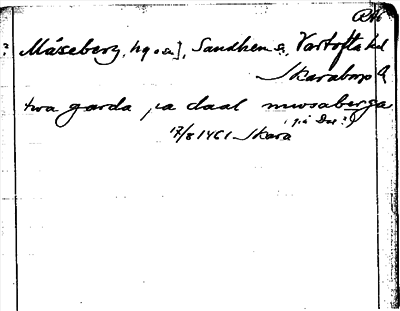 RAp
? Måseberg, hg. o. a.], Sandhem s., Vartofta hd
Skaraborg l
twa garda pa daal mwsaberga
17/8 1461 Skara